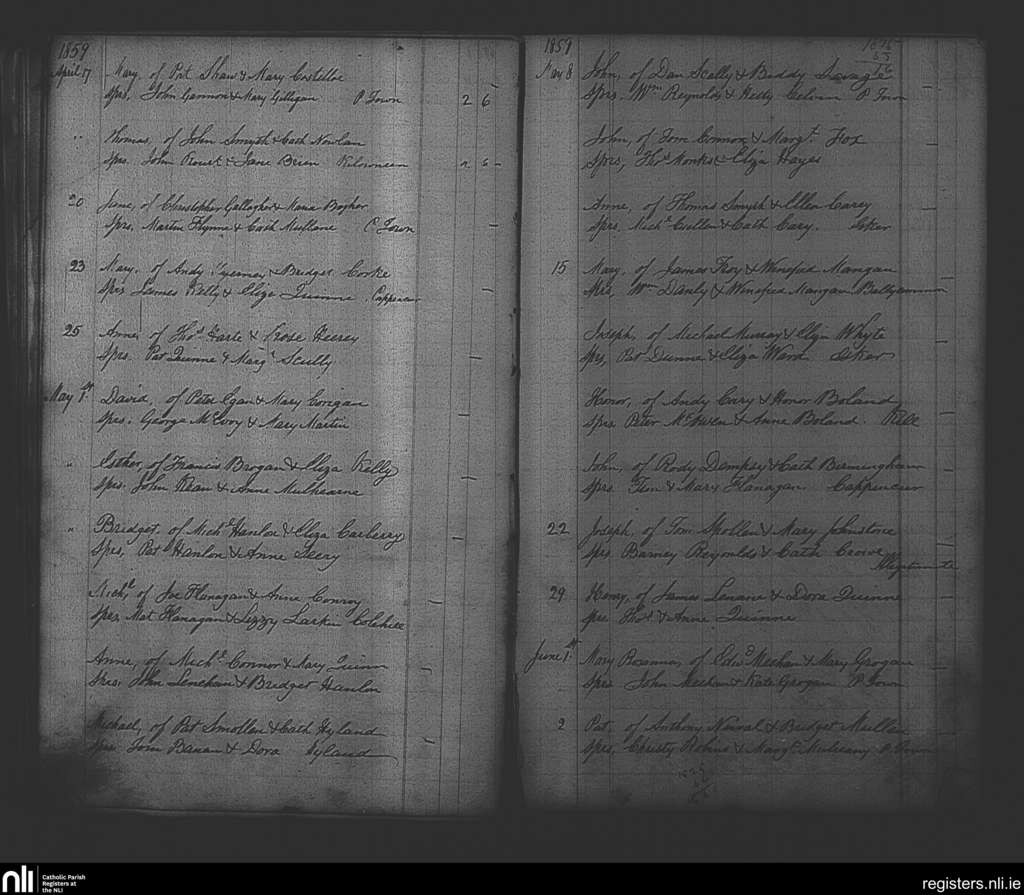 1859
April 17 Mary, of Pat Shaw & Mary Costelloe
Sprs. John Gannon & Mary Gilligan P. Town 2 6
" Thomas, of John Smyth & Cath Nowlan
Sprs. John & Jane Brien 2 6 -
20 Jane, of Christopher Gallagher & Maria
Sprs, Martin Flynne & Cath Mullane P. Town -
23 Mary, of Andy & Bridget Corke
Sprs James Kelly & Eliza Quinne Cappincur -
25 Anne, of Thos. Harte & Rose Heerey
Sprs. Pat Quinne & Margt Scully -
May 1st. David, of Peter Egan & Mary Corrigan
Sprs. George McEvoy & Mary Martin -
" Esther, of Francis Brogan & Eliza Kelly
Sprs. John Kean & Anne Mulhearne -
" Bridget, of Michl Hanlon & Eliza Carberry
Sprs, Pat Hanlon & Anne Seery -
Michl, of Joe Flanagan & Anne Conroy
Sprs, Mat Flanagan & Lizzy Larkin Colehill -
Anne, of Michl Connor & Mary Quinn
Sprs. John Lenehan & Bridget Hanlon -
Michael, of Pat Smollen & Cath Hyland
Sprs Tom & Dora Hyland -
1859
May 8 John, of Dan Scally & Biddy Savage
Sprs. Wm Reynolds & Hetty P. Town -
John, of Tom Connor & Margt. Fox
Sprs, Thos Monks & Eliza Hayes -
Anne, of Thomas Smyth & Ellen Carey
Sprs, Michl Cullen & Cath Cary. Esker -
15 Mary, of James Troy & Winefred Mangan
Sprs, Wm Danly & Winefred Mangan -
Joseph, of Michael Murray & Eliza Whyte
Sprs, Pat Dunne & Eliza Ward Esker -
Honor, of Andy Cary & Honor Boland
Sprs Peter McOwen & Anne Boland. -
John, of Rody Dempsey & Cath Birmingham
Sprs. Tim & Mary Flanagan. Cappincur -
22 Joseph, of Tom Spollen & Mary Johnstone
Sprs. Barney Reynolds & Cath -
Illegitimate
29 Henry, of James Lenane & Dora Quinne
Sprs Thos. & Anne Quinne
June 1st. Mary Rosanna, of Edwd Meehan & Mary Grogan
Sprs John Meehan & Kate Grogan P. Town
2 Pat, of Anthony & Bridget Mullen
Sprs, Christy & Margt P. Town
nli Catholic Parish
Registers at
the NLI
registers.nli.ie